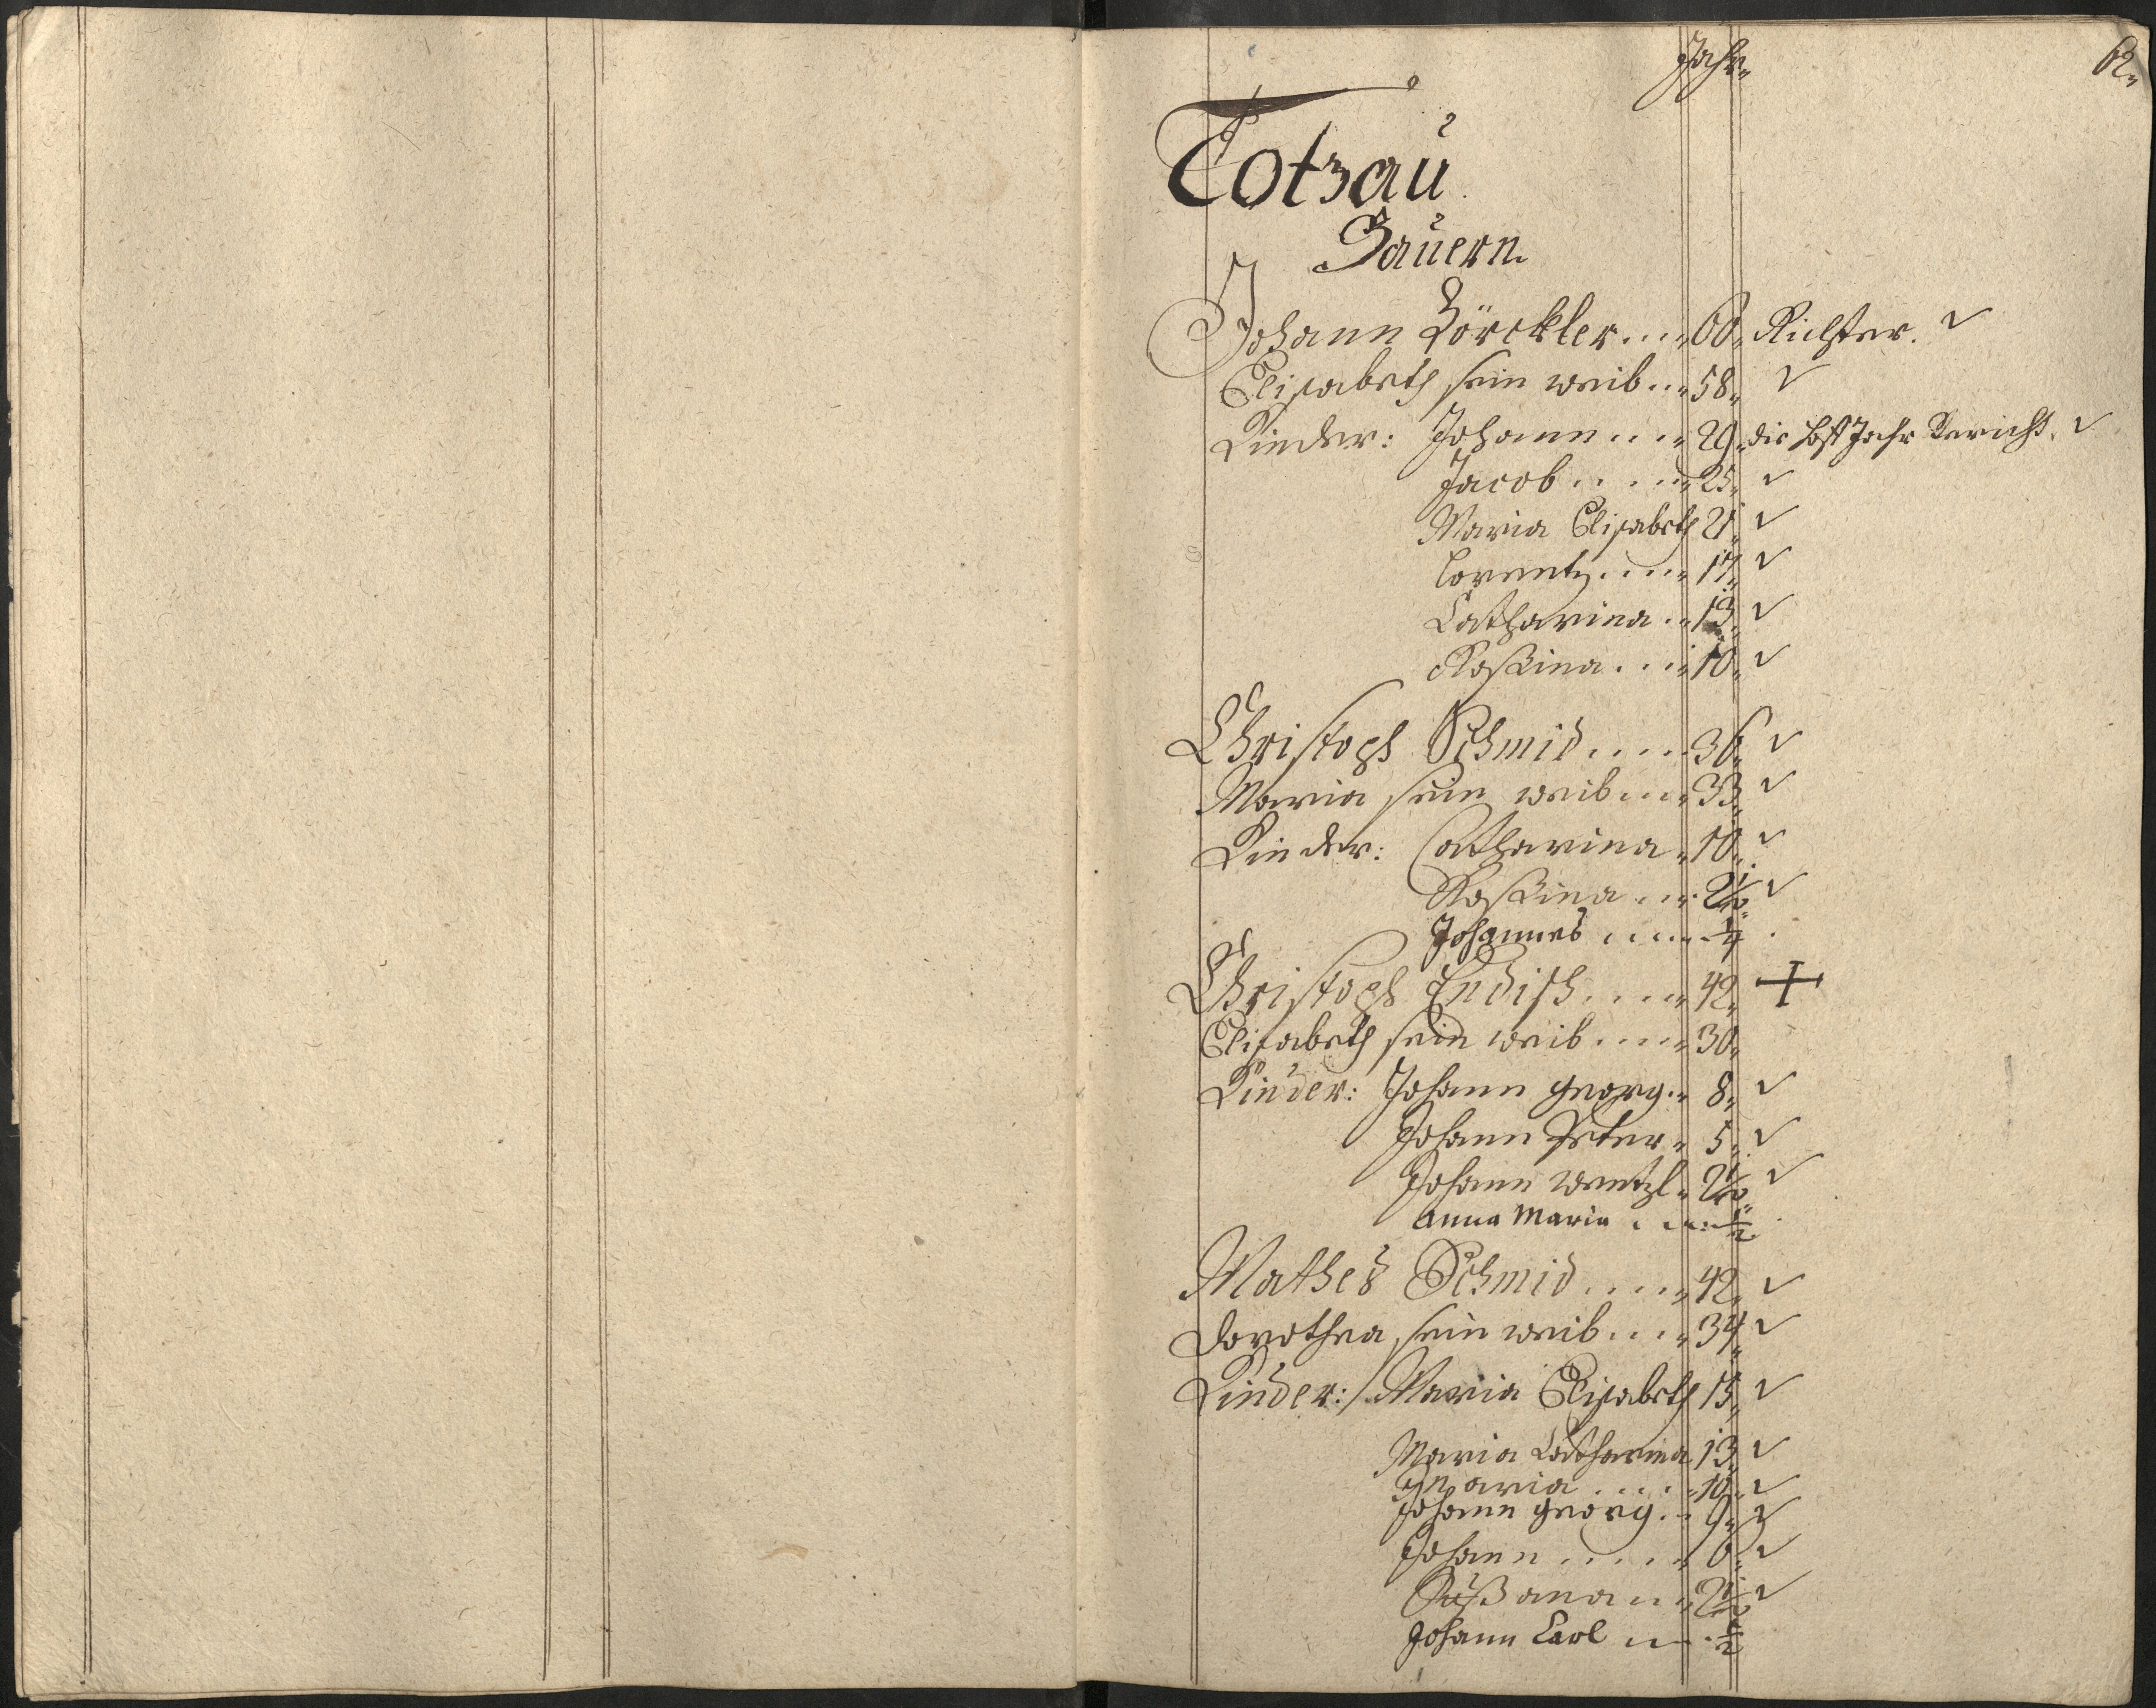 Jahr
62
Totzau
Bauern
Johann Lörckler 60 Richter.
Elisabeth sein weib 58
Kinder: Johann 29 die Hoff Jahr
Jacob 25
Maria Elisabeth 21
Lorentz 17
Catharina 13
Rosina 10
Christoph Schmid 36
Maria sein weib 33
Kinder: Catharina 10
Rosina 2 1/2
Johannes 1/4
Christoph Endisch 42
Elisabeth sein weib 30
Kinder: Johann Georg 8
Johann Peter 5
Johann Wentzl 2 1/2
Anna Maria 1/2
Mathes Schmid 42
Dorothea sein weib 34
Kinder: Maria Elisabeth 15
Maria Catharina 13
Maria 10
Johann Georg 9
Johann 6
Sußana 2 1/2
Johann Carl 1/2